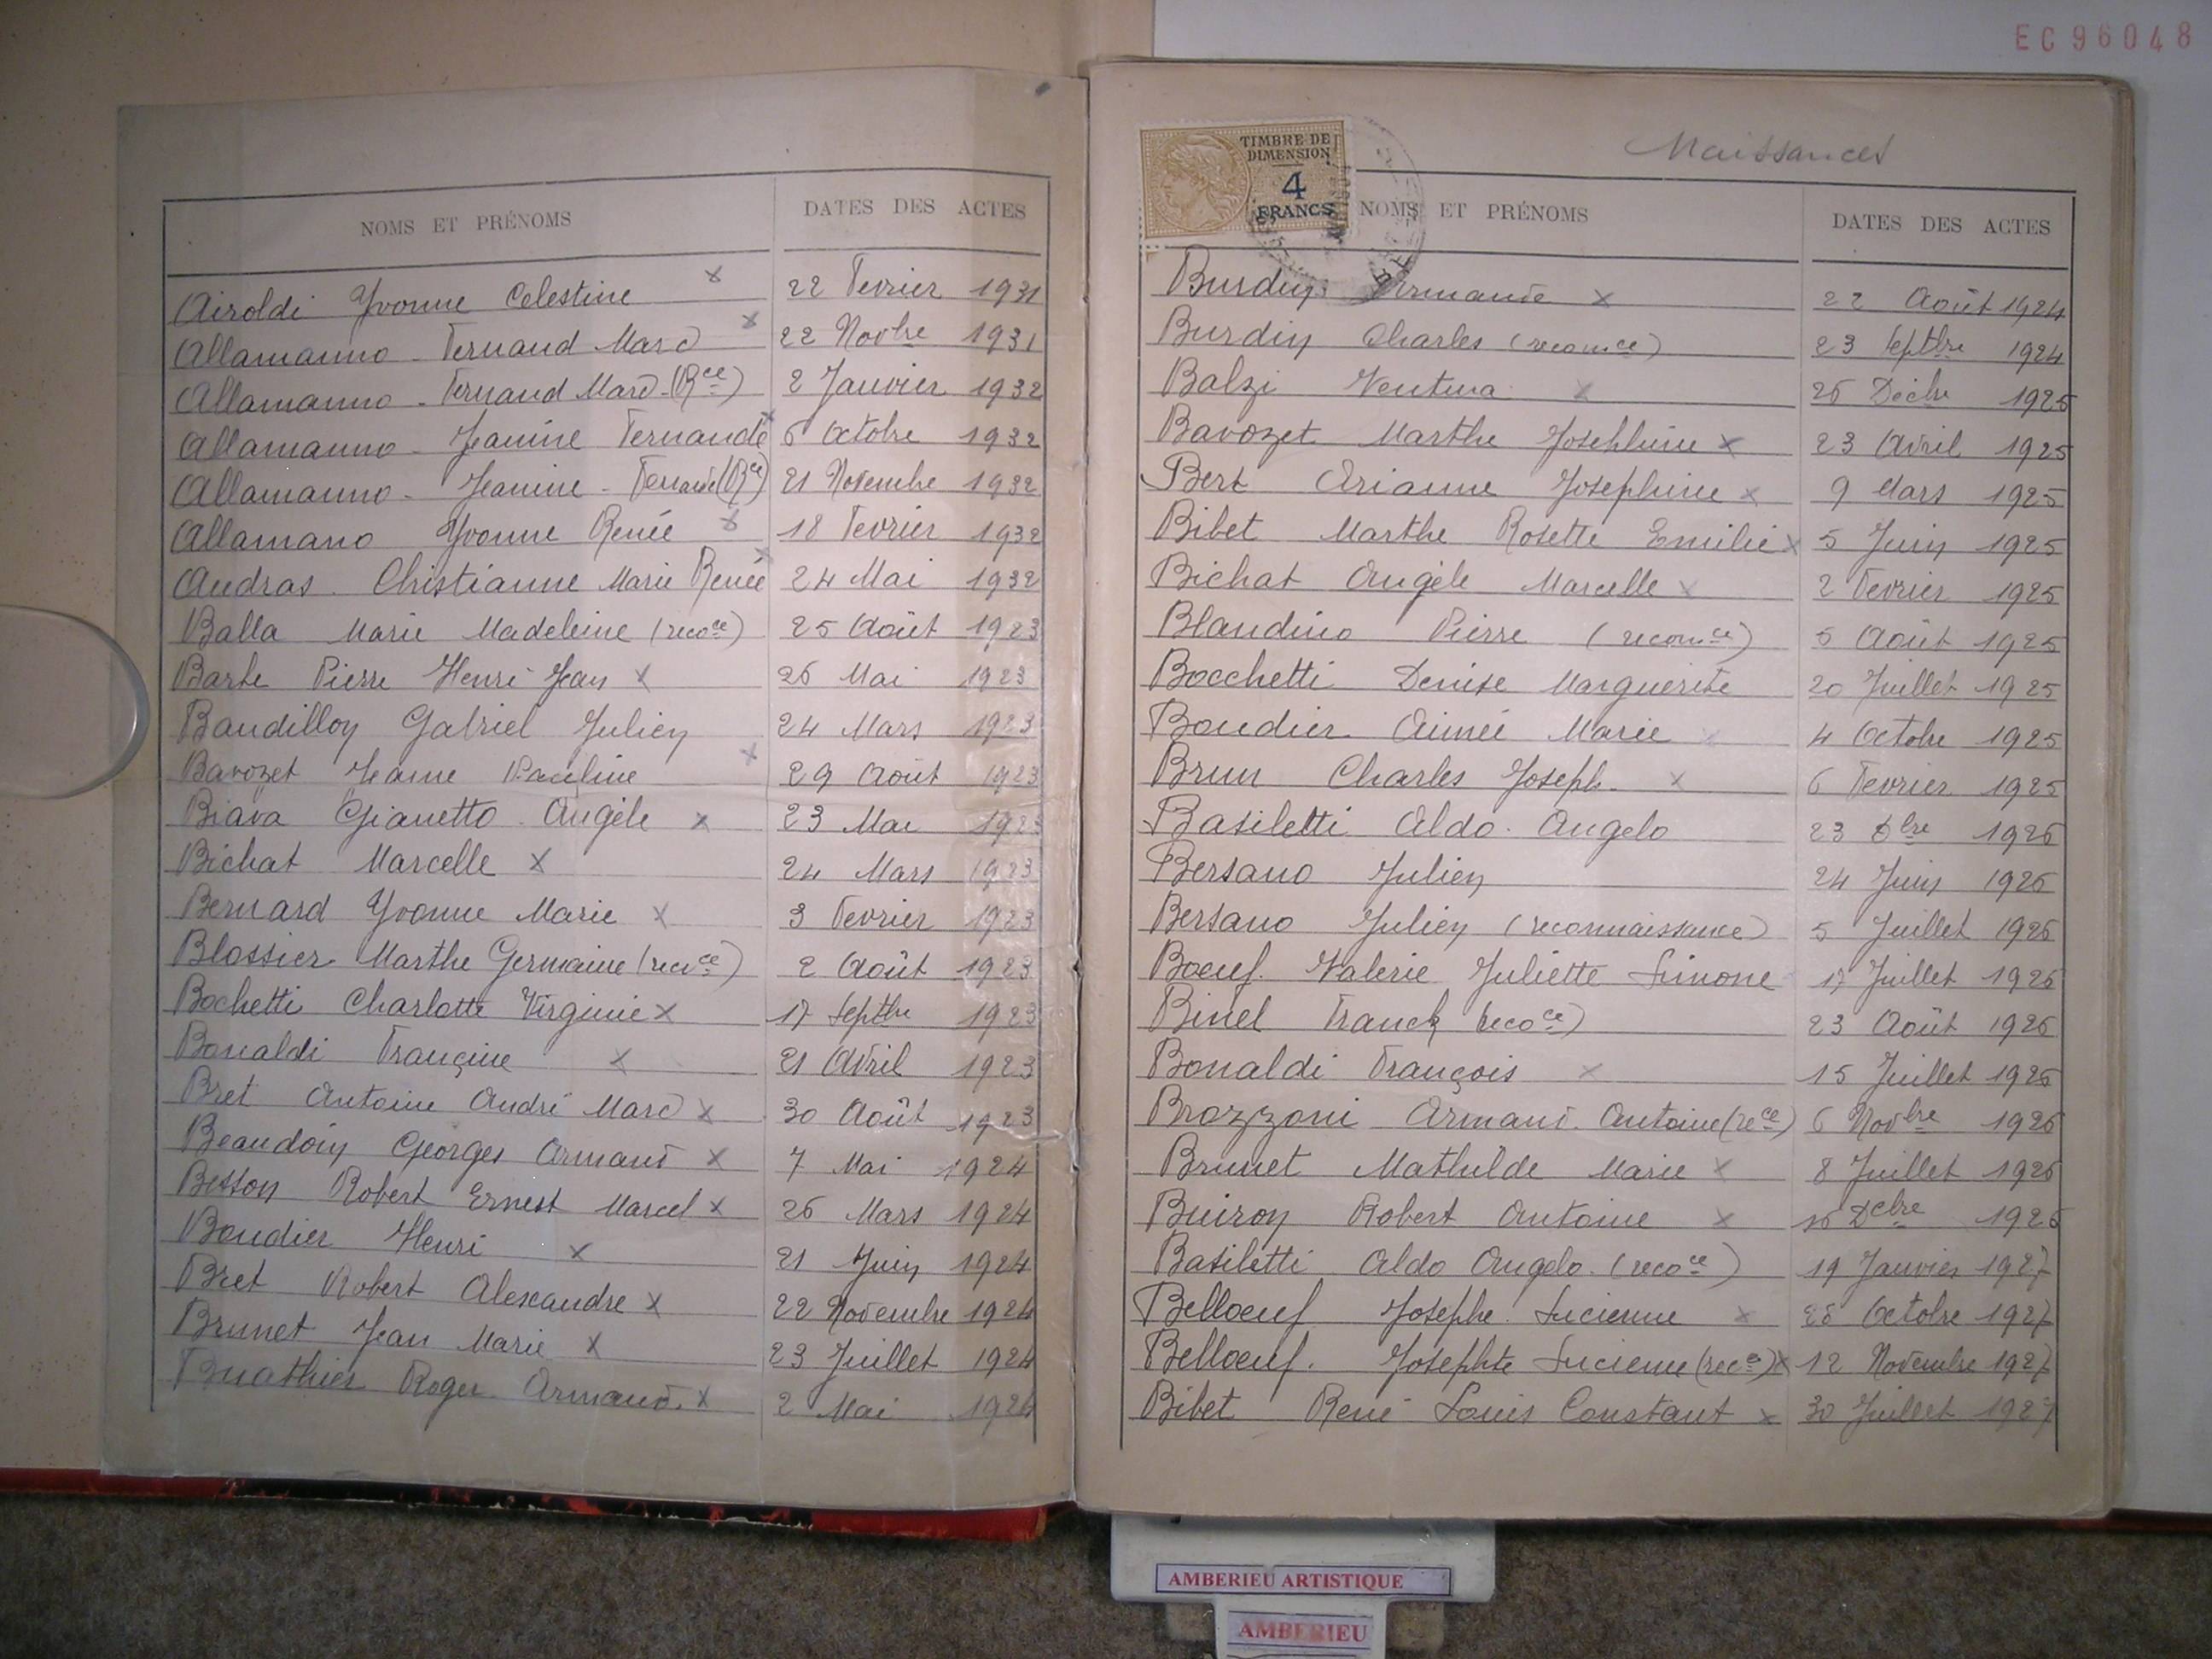 EC96048
NOMS ET PRÉNOMS DATES DES ACTES
Airoldi Yvonne Celestine x 22 Fevrier 1931
Allamanno - Fernand Marc x 22 Novbre 1931
Allamanno - Fernand Marc - (Rce) 2 Janvier 1932
Allamanno - Jeanine Fernande x 6 Octobre 1932
Allamanno - Jeanine - Fernande (Rce) 21 Novembre 1932
Allamano Yvonne Renée x 18 Fevrier 1932
Audras. Christianne Marie Renée x 24 Mai 1932
Balla Marie Madeleine (recoce) 25 Août 1923
Barbe Pierre Henri Jean x 26 Mai 1923
Baudillon Gabriel Julien 24 Mars 1923
Bavozet Jeanne Pauline x 29 Août 1923
Biava Gianetto Angèle x 23 Mai 1923
Bichat Marcelle x 24 Mars 1923
Bernard Yvonne Marie x 3 Fevrier 1923
Blossier Marthe Germaine (recce) 2 Août 1923
Bochetti Charlotte Virginie x 17 Septbre 1923
Bonaldi Françine x 21 Avril 1923
Bret Antoine André Marc x 30 Août 1923
Beaudoin Georges Armand x 7 Mai 1924
Besson Robert Ernest Marcel x 26 Mars 1924
Boudier Henri x 21 Juin 1924
Bret Robert Alexandre x 22 Novembre 1924
Brunet Jean Marie x 23 Juillet 1924
Buathier Roger Armand. x 2 Mai 1924
Naissances
TIMBRE DE
DIMENSION
4
FRANCS
NOMS ET PRÉNOMS DATES DES ACTES
Burdin Armande x 22 Août 1924
Burdin Charles (reconnce) 23 Septbre 1924
Balzi Ventura x 26 Décbre 1925
Bavozet Marthe Josephine x 23 Avril 1925
Bert Arianne Josephine x 9 Mars 1925
Bibet Marthe Rosette Emilie x 5 Juin 1925
Bichat Angèle Marcelle x 2 Fevrier 1925
Blandino Pierre (reconce) 5 Août 1925
Bocchetti Denise Marguerite 20 Juillet 1925
Boudier Aimée Marie x 4 Octobre 1925
Brun Charles Joseph. x 6 Fevrier 1925
Basiletti Aldo. Angelo 23 Dbre 1926
Bersano Julien 24 Juin 1926
Bersano Julien (reconnaissance) 5 Juillet 1926
Boeuf. Valerie Juliette Simone 17 Juillet 1926
Binel Franck (recoce) 23 Août 1926
Bonaldi François x 15 Juillet 1926
Brozzoni Armand. Antoine (rece) 6 Novbre 1926
Brunet Mathilde Marie x 8 Juillet 1926
Buiron Robert Antoine x 16 Dcbre 1926
Basiletti Aldo Angelo. (recoce) 19 Janvier 1927
Belloeuf Josephe. Lucienne x 28 Octobre 1927
Belloeuf. Josephte Lucienne (rece) x 12 Novembre 1927
Bibet René Louis Constant x 30 Juillet 1927
AMBERIEU ARTISTIQUE
AMBERIEU